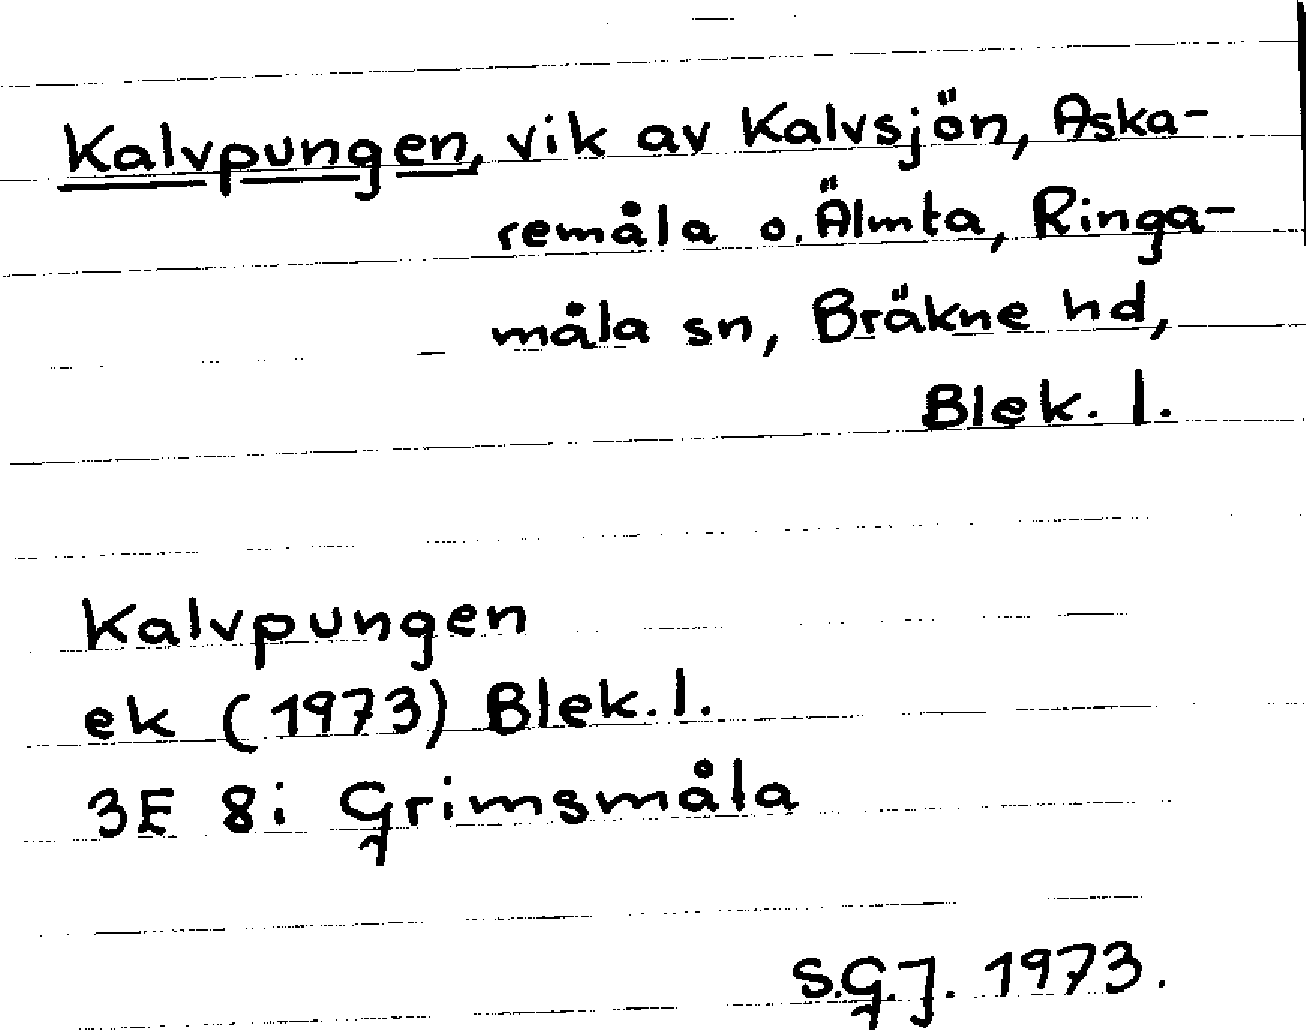 Kalvpungen, vik av Kalvsjön, Aska-
remåla o. Älmta, Ringa-
måla sn, Bräkne hd,
Blek. l.
Kalvpungen
ek (1973) Blek. l.
3E 8i Grimsmåla
S.G.J. 1973.